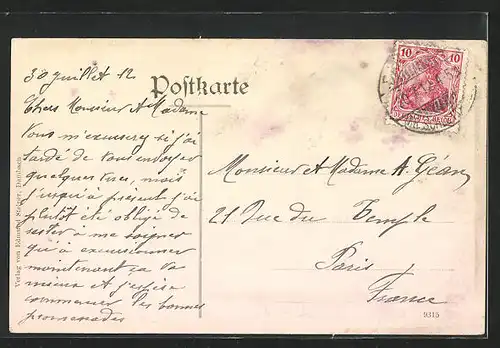 30 juillet 12
Postkarte
Chers Monsieur et Madame
Vous m'excuserez si j'ai
tardé de vous envoyer
quelques vues, mais
jusqu'à présent j'ai
plutôt été obligé de
rester à me soigner
qu'à excursionner
maintenant ça va
mieux et j'espère
commencer les bonnes
promenades
Monsieur et Madame A. Géan
21 Rue du Temple
Paris
France
10 10
DEUTSCHES REICH
Verlag von Eduard
9315